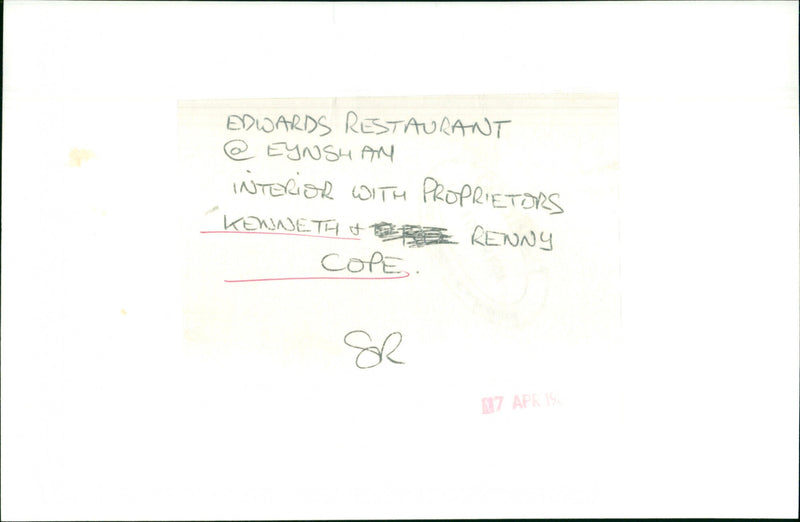 EDWARDS RESTAURANT
@ EYNSHAM
INTERIOR WITH PROPRIETORS
KENNETH & RENNY
COPE.
SR
17 APR 19